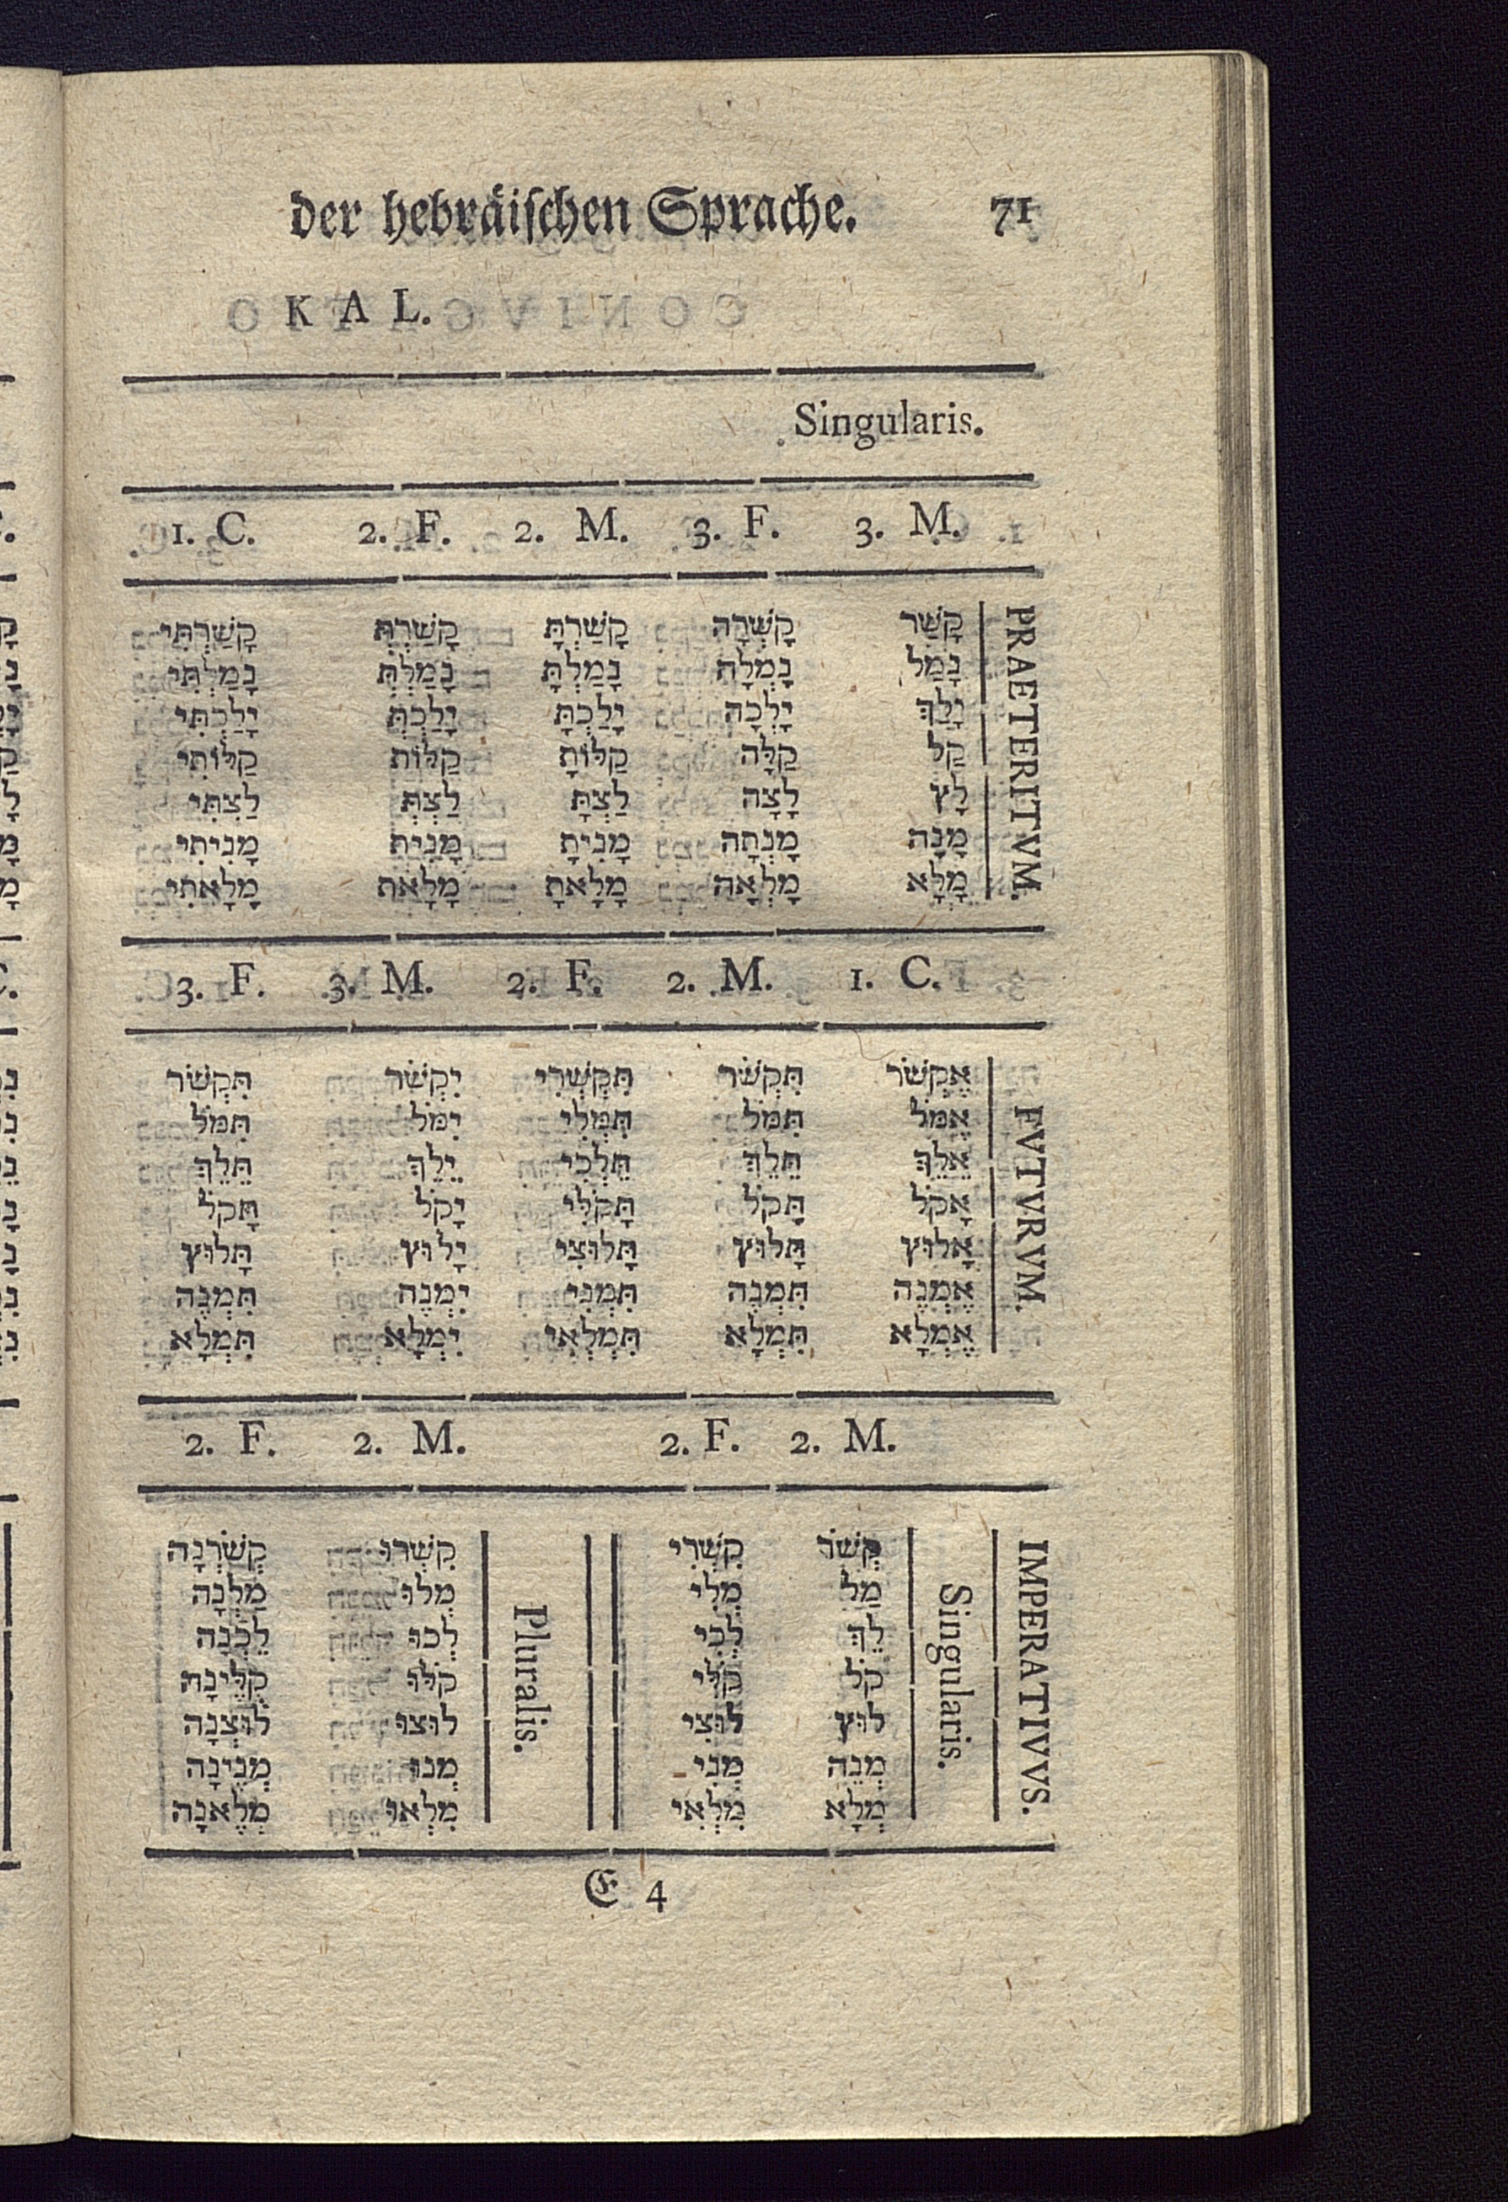 der hebräiſchen Sprache. 71
KAL.
Singularis.
1. C. 2. F. 2. M. 3. F. 3. M.
PRAETERITVM.
קָשַׁר קָשְׁרָה קָשַׁרְתָּ קָשַׁרְתְּ קָשַׁרְתִּי
נָמַל נָמְלָה נָמַלְתָּ נָמַלְתְּ נָמַלְתִּי
יָלַךְ יָלְכָה יָלַכְתָּ יָלַכְתְּ יָלַכְתִּי
קַל קַלָּה קַלּוֹתָ קַלּוֹת קַלּוֹתִי
לָץ לָצָה לַצְתָּ לַצְתְּ לַצְתִּי
מָנָה מָנְתָה מָנִיתָ מָנִית מָנִיתִי
מָלָא מָלְאָה מָלָאתָ מָלָאת מָלָאתִי
3. F. 3. M. 2. F. 2. M. 1. C.
FVTVRVM.
אֶקְשֹׁר תִּקְשֹׁר תִּקְשְׁרִי יִקְשֹׁר תִּקְשֹׁר
אֶמֹּל תִּמֹּל תִּמְּלִי יִמֹּל תִּמֹּל
אֵלֵךְ תֵּלֵךְ תֵּלְכִי יֵלֵךְ תֵּלֵךְ
אָקֹל תָּקֹל תָּקֹלִּי יָקֹל תָּקֹל
אָלוּץ תָּלוּץ תָּלוּצִי יָלוּץ תָּלוּץ
אֶמְנֶה תִּמְנֶה תִּמְנִי יִמְנֶה תִּמְנֶה
אֶמְלָא תִּמְלָא תִּמְלְאִי יִמְלָא תִּמְלָא
2. F. 2. M. 2. F. 2. M.
IMPERATIVVS.
Singularis.
קְשֹׁר קִשְׁרִי
מַל מְלִי
לֵךְ לְכִי
קֹל קֹלִּי
לוּץ לוּצִי
מְנֵה מְנִי
מְלָא מִלְאִי
Pluralis.
קִשְׁרוּ קְשֹׁרְנָה
מְלוּ מַלְנָה
לְכוּ לֵכְנָה
קֹלּוּ קֻלֶּינָה
לוּצוּ לוֹצְנָה
מְנוּ מְנֶינָה
מִלְאוּ מְלֶאנָה
E 4